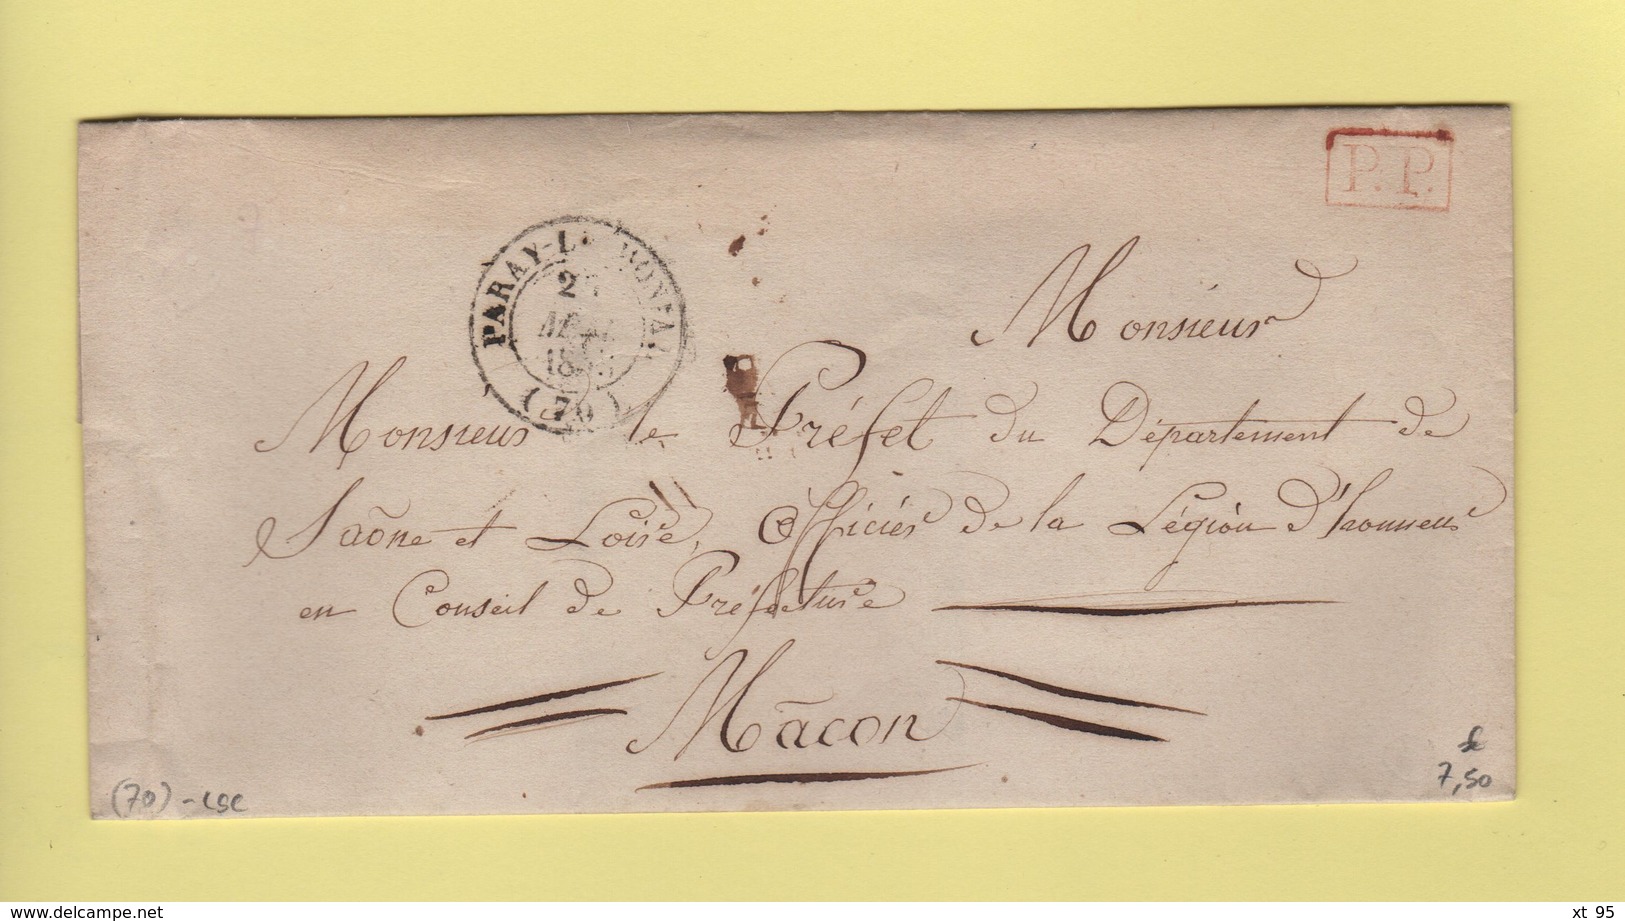 P.P.
PARAY-LE-MONIAL
2
18
(70)
Monsieur
Monsieur le Préfet du Département de
Saône et Loire, Officier de la Légion d'honneur
en Conseil de Préfecture
Mâcon
(70) - LSC
7,50
delcampe.net
xt 95